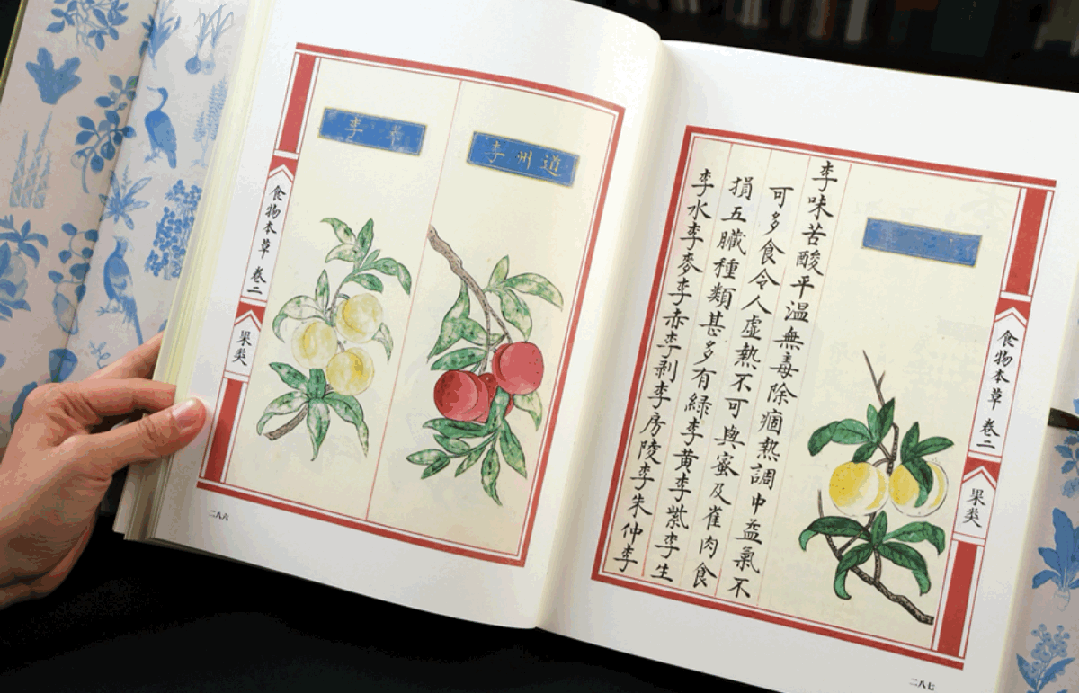 道州李
李
食物本草 卷二
果类
二八六
李味苦酸平溫無毒除痼熱調中益氣不
可多食令人虛熱不可與蜜及雀肉食
損五臟種類甚多有綠李黃李紫李生
李水李麥李赤李剥李房陵李朱仲李
食物本草 卷二
果类
二八七